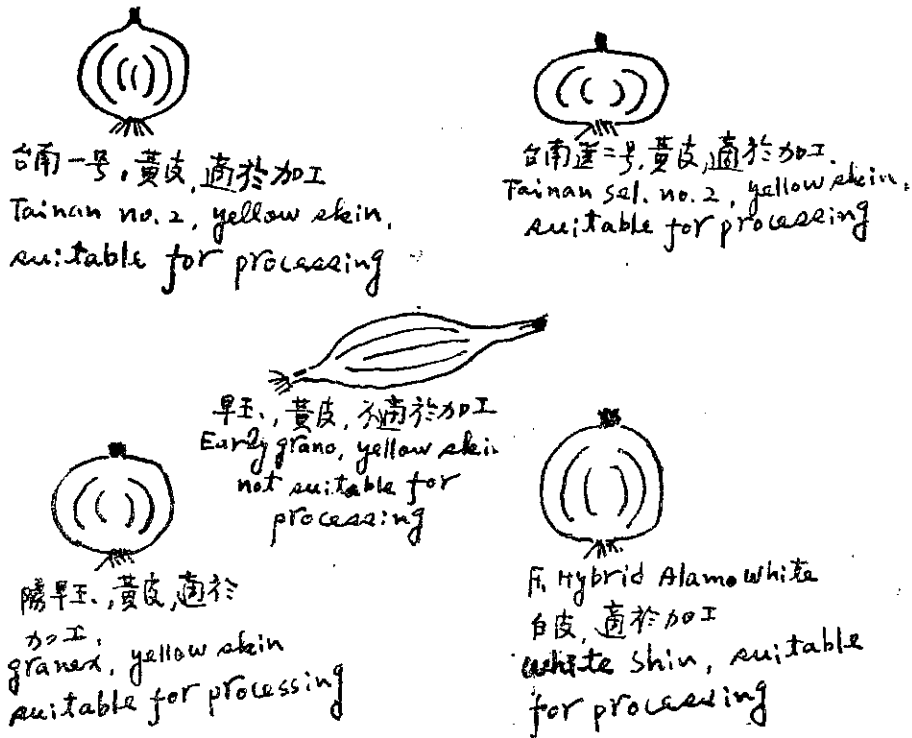 台南一号,黃皮,適於加工
Tainan no. 2, yellow skin,
suitable for processing
台南選二号,黃皮,適於加工.
Tainan sel. no. 2, yellow skin,
suitable for processing
早玉,黃皮,不適於加工
Early grano, yellow skin
not suitable for
processing
勝早玉,黃皮,適於
加工,
granex, yellow skin
suitable for processing
F1 Hybrid Alamo White
白皮,適於加工
white skin, suitable
for processing